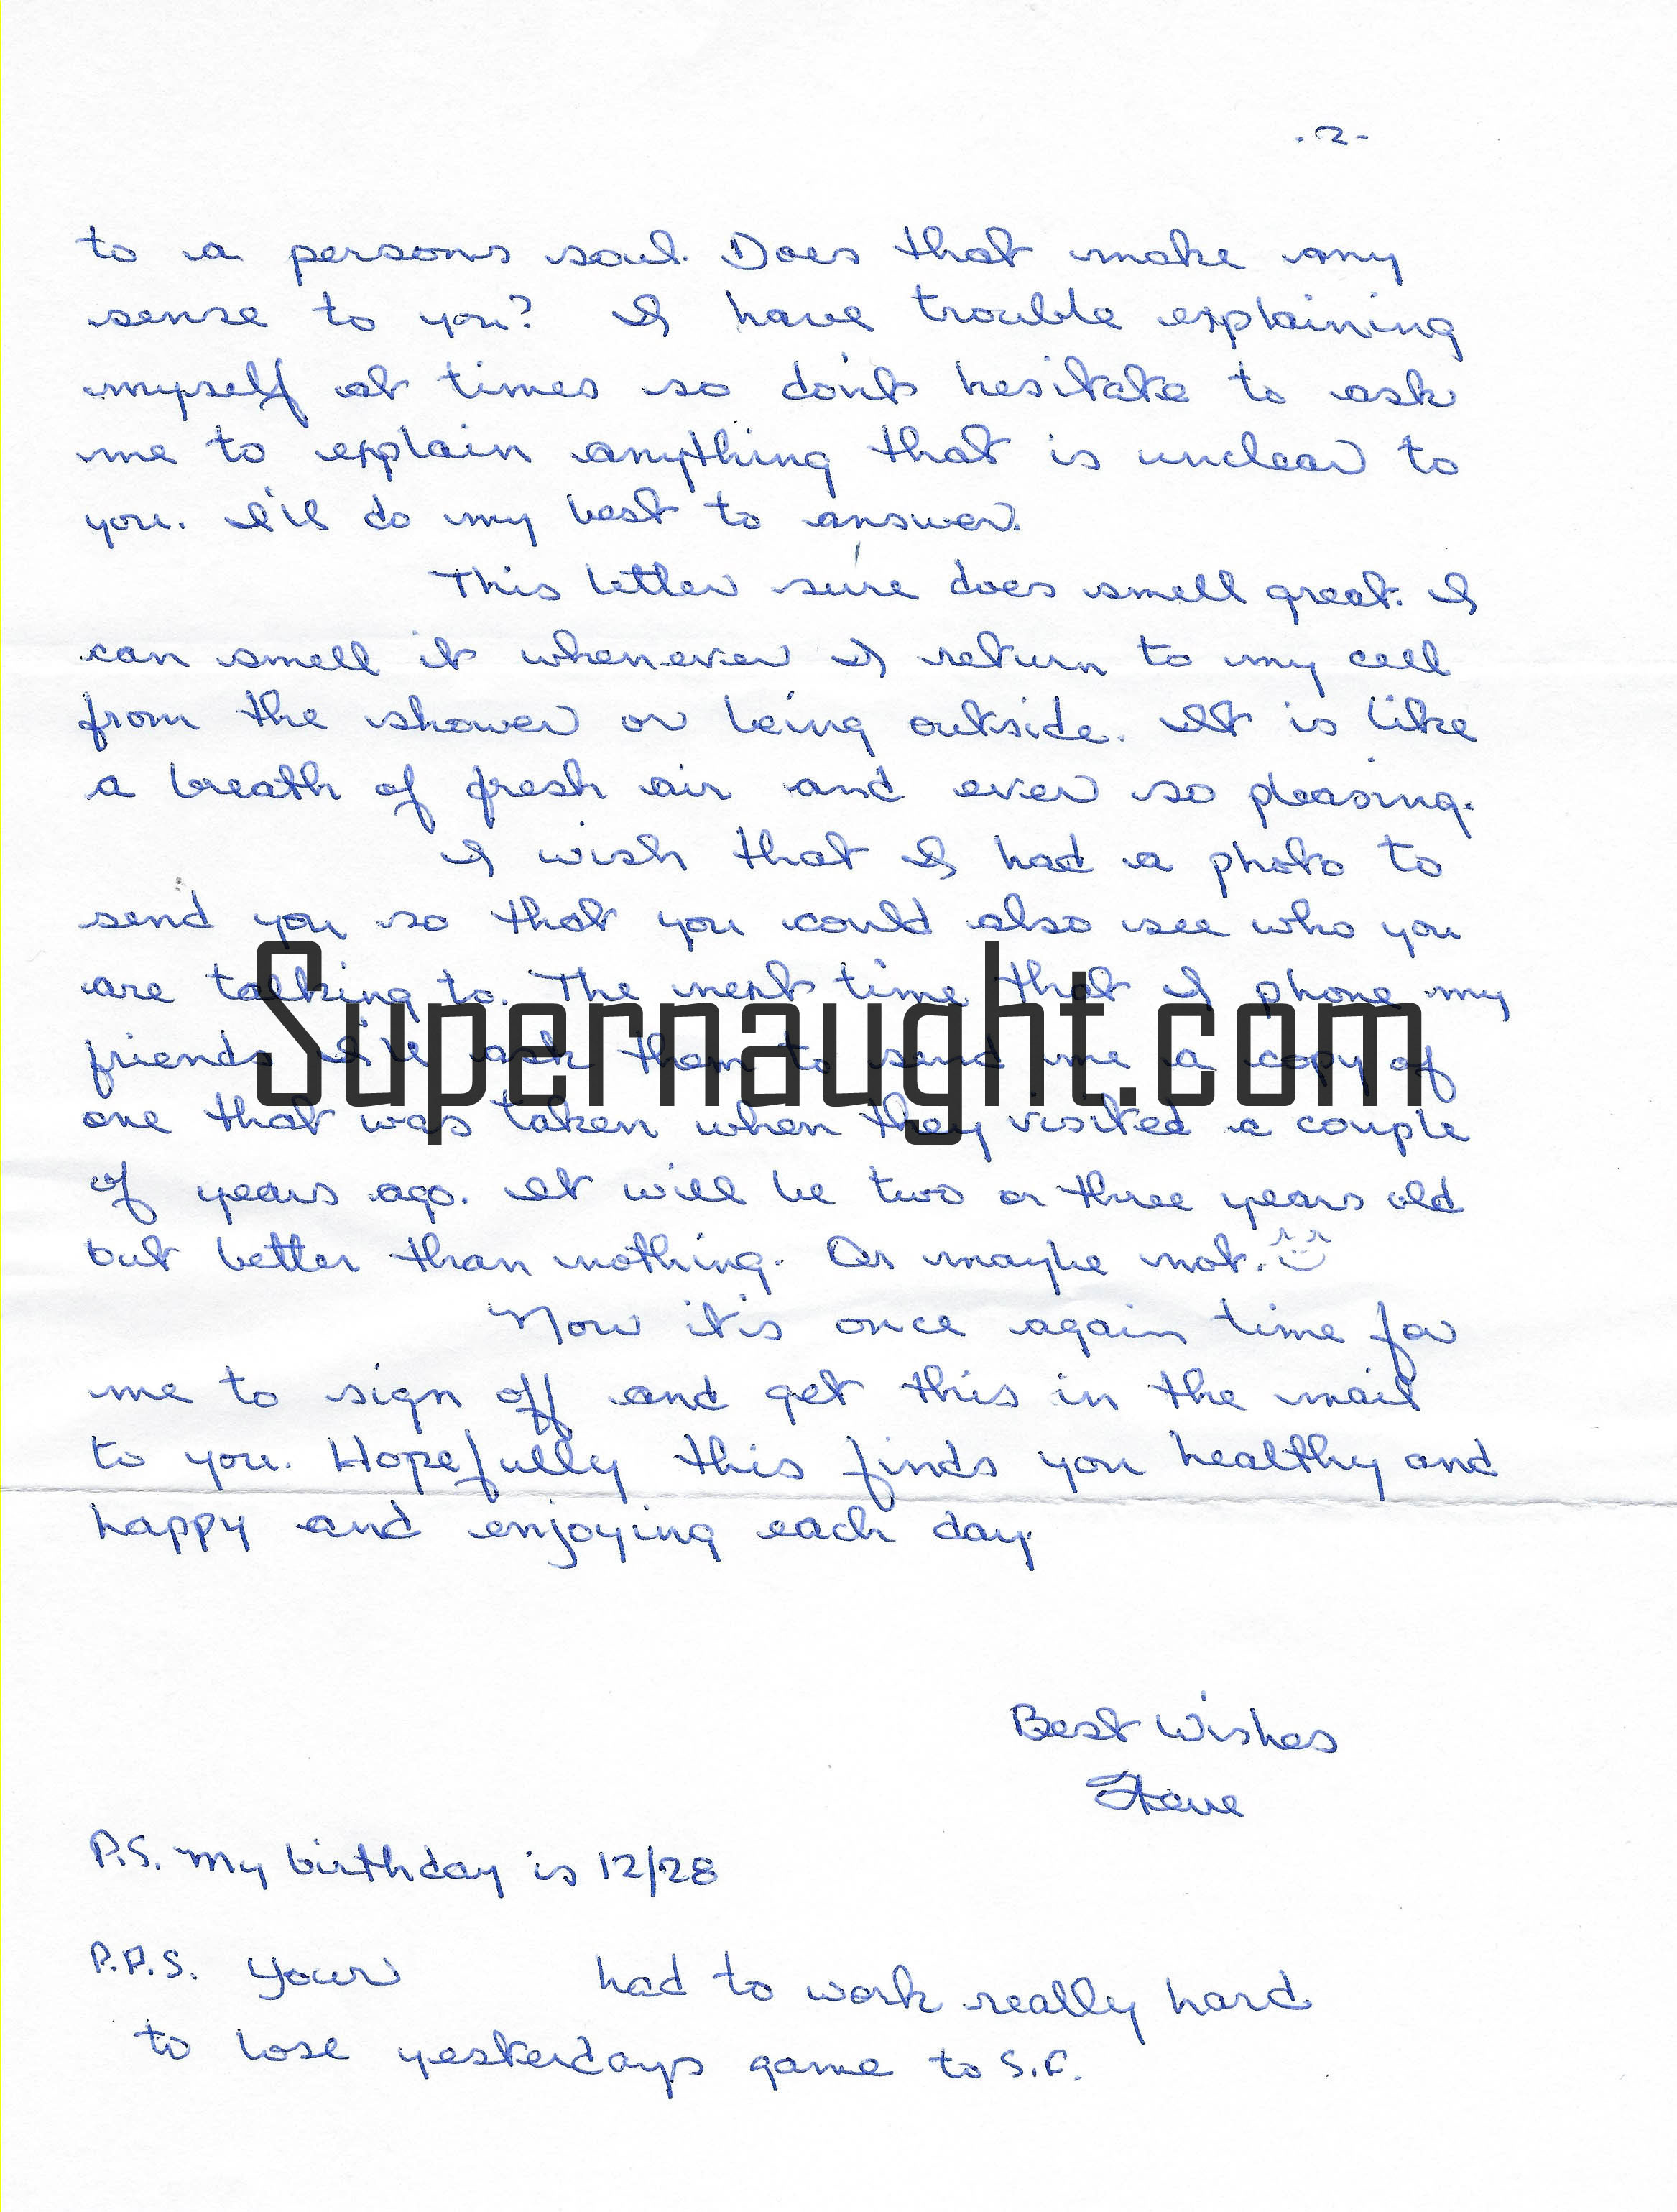 -2-
to a persons soul. Does that make any
sense to you? I have trouble explaining
myself at times so don't hesitate to ask
me to explain anything that is unclear to
you. I'll do my best to answer.
This letter sure does smell great. I
can smell it whenever I return to my cell
from the shower or being outside. It is like
a breath of fresh air and ever so pleasing.
I wish that I had a photo to
send you so that you could also see who you
are talking to. The next time that I phone my
Supernaught.com
friends I'll ask them to send me a copy of
one that was taken when they visited a couple
of years ago. It will be two or three years old
but better than nothing. Or maybe not.
Now it's once again time for
me to sign off and get this in the mail
to you. Hopefully this finds you healthy and
happy and enjoying each day.
Best Wishes
Steve
P.S. My birthday is 12/28
P.P.S. Your had to work really hard
to lose yesterdays game to S.F.